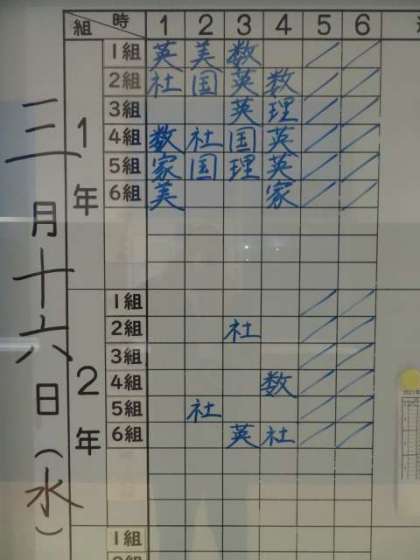 三月十六日(水)
組 時 1 2 3 4 5 6
1年
1組 英 美 数 / /
2組 社 国 英 数 / /
3組 英 理 / /
4組 数 社 国 英 / /
5組 家 国 理 英 / /
6組 美 家 / /
2年
1組 / /
2組 社 / /
3組 / /
4組 数 / /
5組 社 / /
6組 英 社 / /
1組